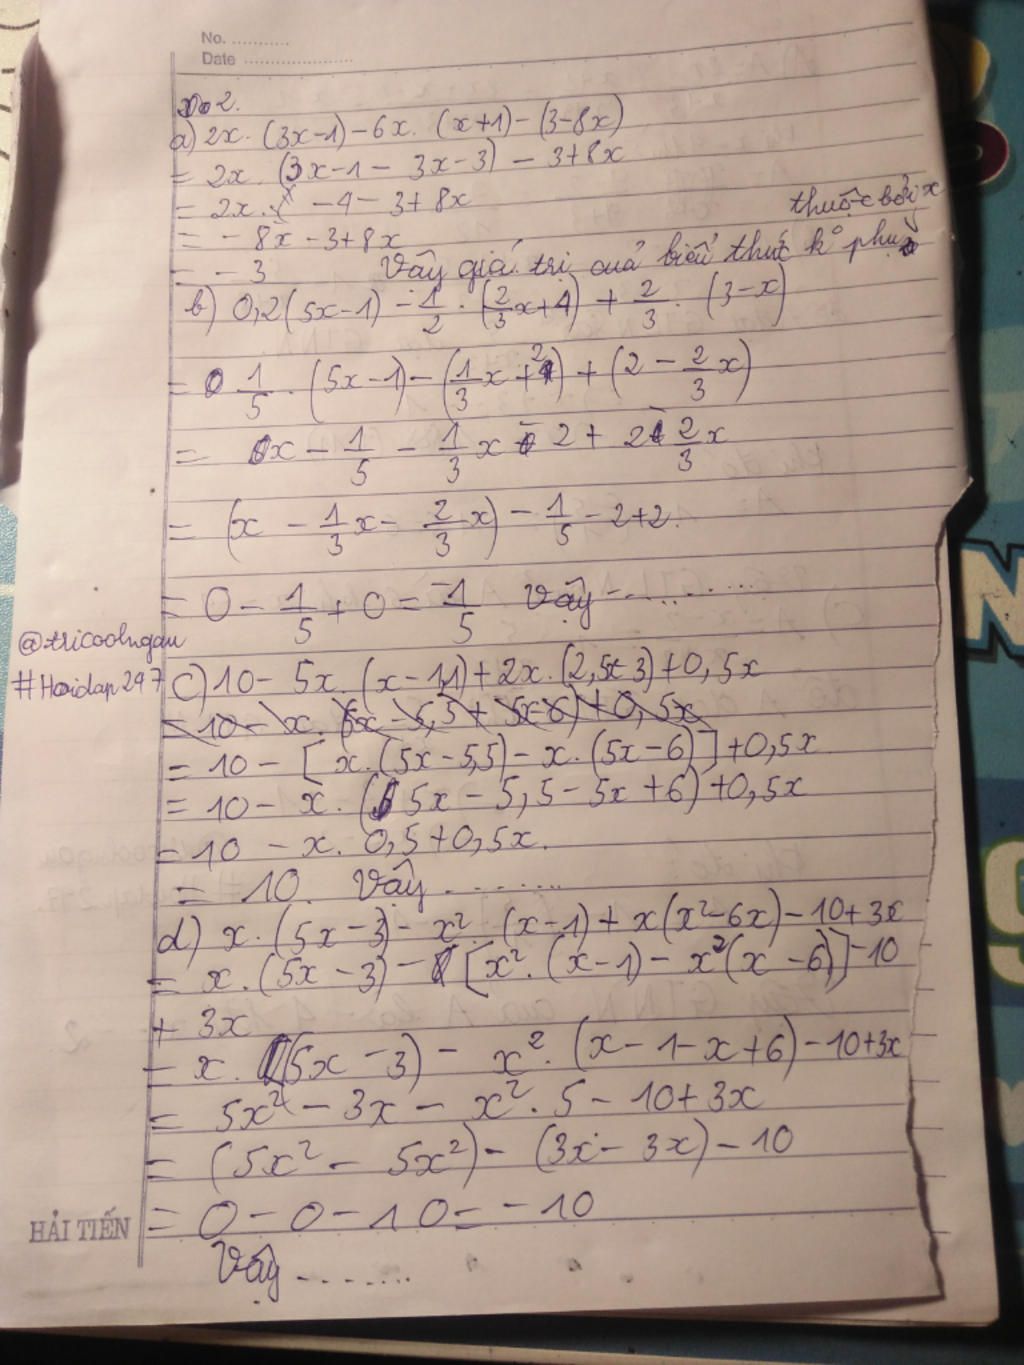 No. ...........
Date .....................
2.
a) 2x . (3x-1) - 6x . (x+1) - (3-8x)
= 2x . (3x-1 - 3x-3) - 3+8x
= 2x . -4 - 3+8x
thuộc bởi x
= - 8x - 3+8x
= - 3 Vậy giá trị của biểu thức k° phụ
b) 0,2(5x-1) - 1/2 . (2/3x+4) + 2/3 . (3-x)
= 1/5 . (5x-1) - (1/3x+2) + (2 - 2/3x)
= x - 1/5 - 1/3x - 2 + 2 - 2/3x
= (x - 1/3x - 2/3x) - 1/5 - 2+2.
= 0 - 1/5 + 0 = -1/5 Vậy ............
@tricoolngau
#Hoidap247
c) 10 - 5x . (x-1,1) + 2x . (2,5x-3) + 0,5x
= 10 - x . (5x - 5,5 + 5x-6) + 0,5x
= 10 - [x . (5x-5,5) - x . (5x-6)] + 0,5x
= 10 - x . (5x - 5,5 - 5x + 6) + 0,5x
= 10 - x . 0,5+0,5x.
= 10. Vậy .........
d) x . (5x-3) - x² . (x-1) + x(x²-6x) - 10+3x
= x . (5x-3) - [x² . (x-1) - x²(x-6)] - 10
+ 3x
- x . (5x-3) - x² . (x-1-x+6) - 10+3x
= 5x² - 3x - x² . 5 - 10+3x
= (5x² - 5x²) - (3x - 3x) - 10
= 0 - 0 - 10 = -10
HẢI TIẾN
Vậy ........